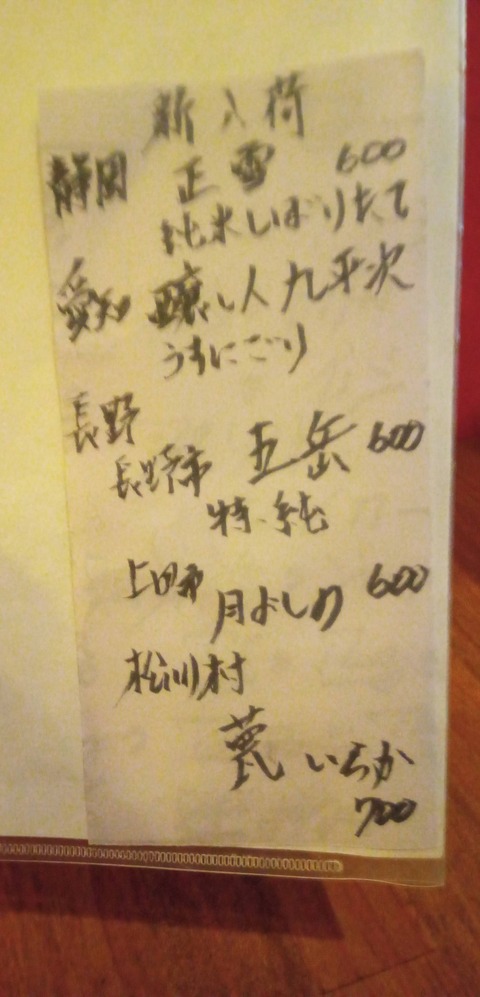 新入荷
静岡 正雪 600
純米しぼりたて
愛知 醸し人九平次
うすにごり
長野
長野市 五岳 600
特・純
上田市 月よしの 600
松川村
蔵 いちか
700